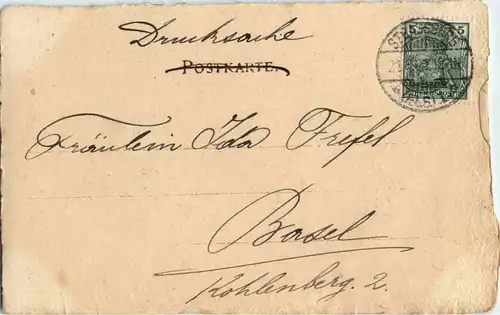 Drucksache
POSTKARTE.
5 5
STRASSBURG
Fräulein Ida Frefel
Basel
Kohlenberg. 2.